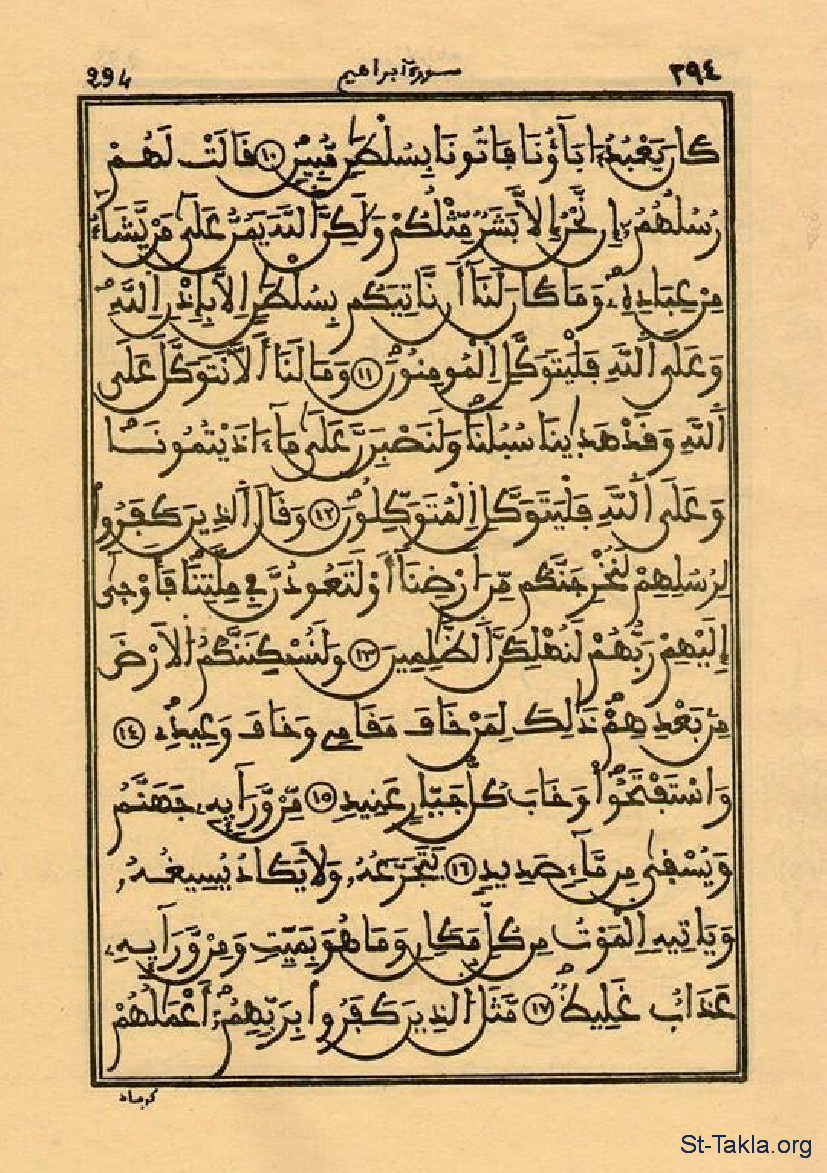 294 سورة ابراهيم ٢٩٤
كَانَ يَعْبُدُ ءَابَآؤُنَا فَاتُونَا بِسُلْطَٰنٍ مُّبِينٍ ١٠ قَالَتْ لَهُمْ
رُسُلُهُمُۥٓ إِن نَّحْنُ إِلَّا بَشَرٌ مِّثْلُكُمْ وَلَٰكِنَّ اَللَّهَ يَمُنُّ عَلَىٰ مَنْ يَّشَآءُ
مِنْ عِبَادِهِۦ وَمَا كَانَ لَنَآ أَن نَّاتِيَكُم بِسُلْطَٰنٍ اِلَّا بِإِذْنِ اِللَّهِ
وَعَلَى اَللَّهِ فَلْيَتَوَكَّلِ اِلْمُومِنُونَ ١١ وَمَا لَنَآ أَلَّا نَتَوَكَّلَ عَلَى
اَللَّهِ وَقَدْ هَدَىٰنَا سُبُلَنَا وَلَنَصْبِرَنَّ عَلَىٰ مَآ ءَاذَيْتُمُونَا
وَعَلَى اَللَّهِ فَلْيَتَوَكَّلِ اِلْمُتَوَكِّلُونَ ١٢ وَقَالَ اَلذِينَ كَفَرُوا
لِرُسُلِهِمْ لَنُخْرِجَنَّكُم مِّنَ اَرْضِنَآ أَوْ لَتَعُودُنَّ فِي مِلَّتِنَا فَأَوْحَىٰٓ
إِلَيْهِمْ رَبُّهُمْ لَنُهْلِكَنَّ اَلظَّٰلِمِينَ ١٣ وَلَنُسْكِنَنَّكُمُ اُلَارْضَ
مِنۢ بَعْدِهِمْ ذَٰلِكَ لِمَنْ خَافَ مَقَامِي وَخَافَ وَعِيدِۦ ١٤
وَاسْتَفْتَحُوا وَخَابَ كُلُّ جَبَّارٍ عَنِيدٍ ١٥ مِّنْ وَّرَآئِهِۦ جَهَنَّمُ
وَيُسْقَىٰ مِن مَّآءٍ صَدِيدٍ ١٦ يَتَجَرَّعُهُۥ وَلَا يَكَادُ يُسِيغُهُۥ
وَيَاتِيهِ اِلْمَوْتُ مِن كُلِّ مَكَانٍ وَمَا هُوَ بِمَيِّتٍ وَمِنْ وَّرَآئِهِۦ
عَذَابٌ غَلِيظٌ ١٧ مَّثَلُ اُلذِينَ كَفَرُوا بِرَبِّهِمُۥٓ أَعْمَٰلُهُمْ
St-Takla.org